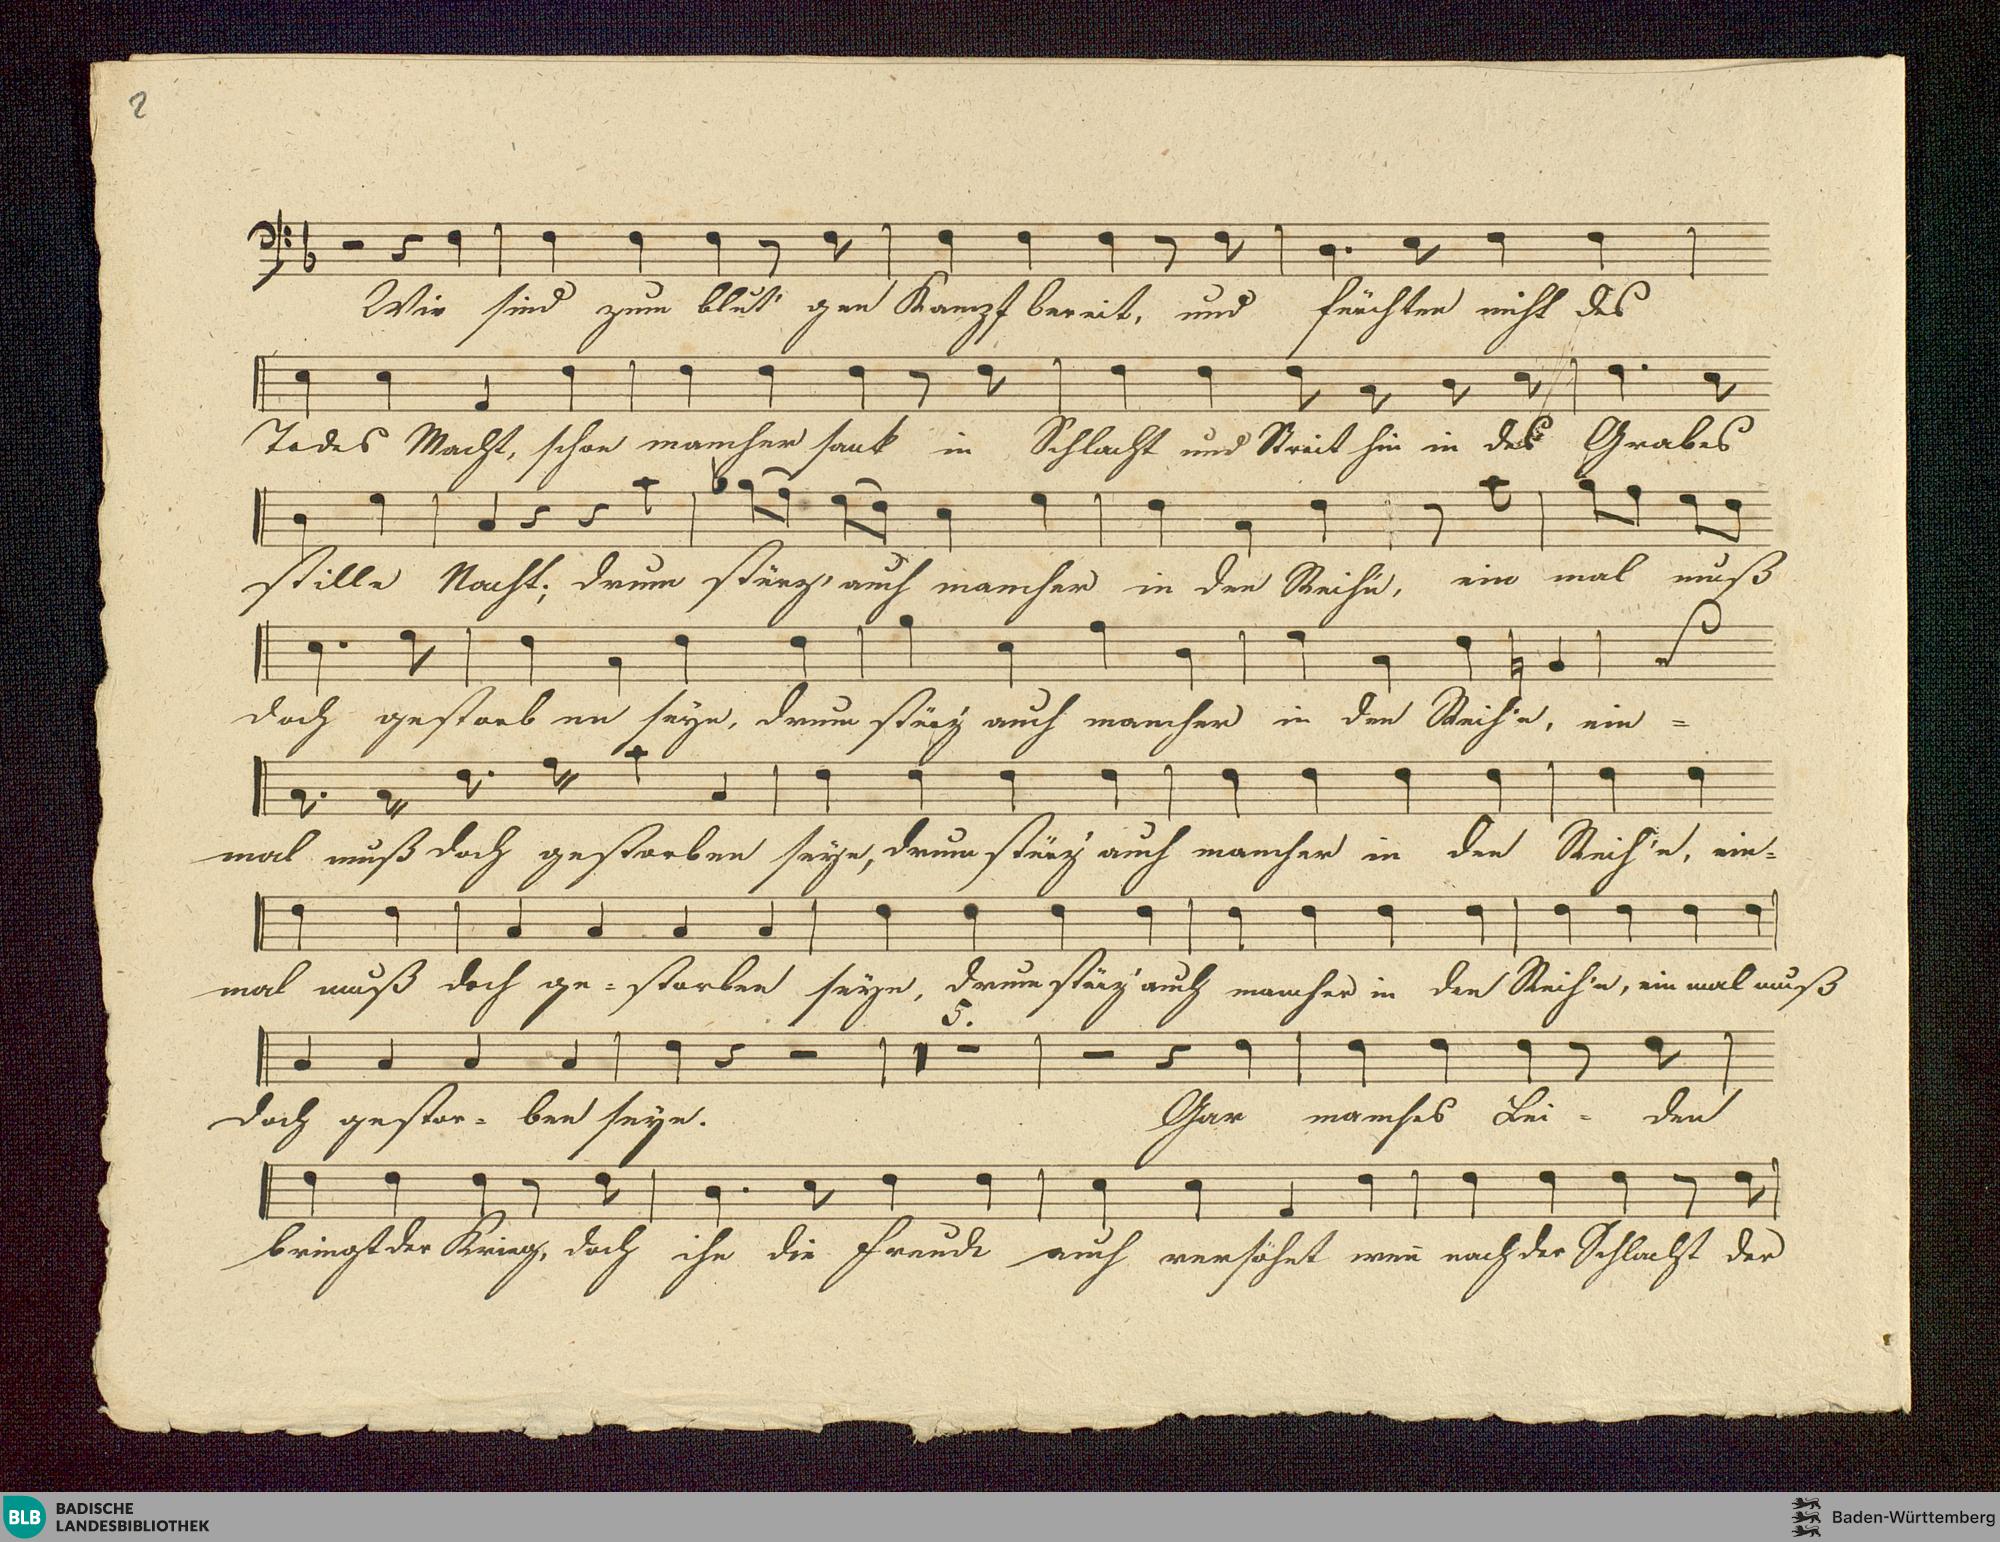 2
Wir sind zum blut' gen Kampf bereit, und fürchten nicht des
Todes Macht, schon mancher sank in Schlacht und Streit hin in des Grabes
stille Nacht; drum stürz' auch mancher in den Reih'n, ein mal muß
doch gestorb en seyn, drum stürz' auch mancher in den Reih'n, ein =
mal muß doch gestorben seyn, drum stürz' auch mancher in den Reih'n, ein=
mal muß doch ge = storben seyn, drum stürz' auch mancher in den Reih'n, ein mal muß
5.
doch gestor = ben seyn. Gar manches Lei = den
bringt der Krieg, doch ihn die Freude auch versöhnt wen̄ nach der Schlacht der
BLB BADISCHE
LANDESBIBLIOTHEK
Baden-Württemberg